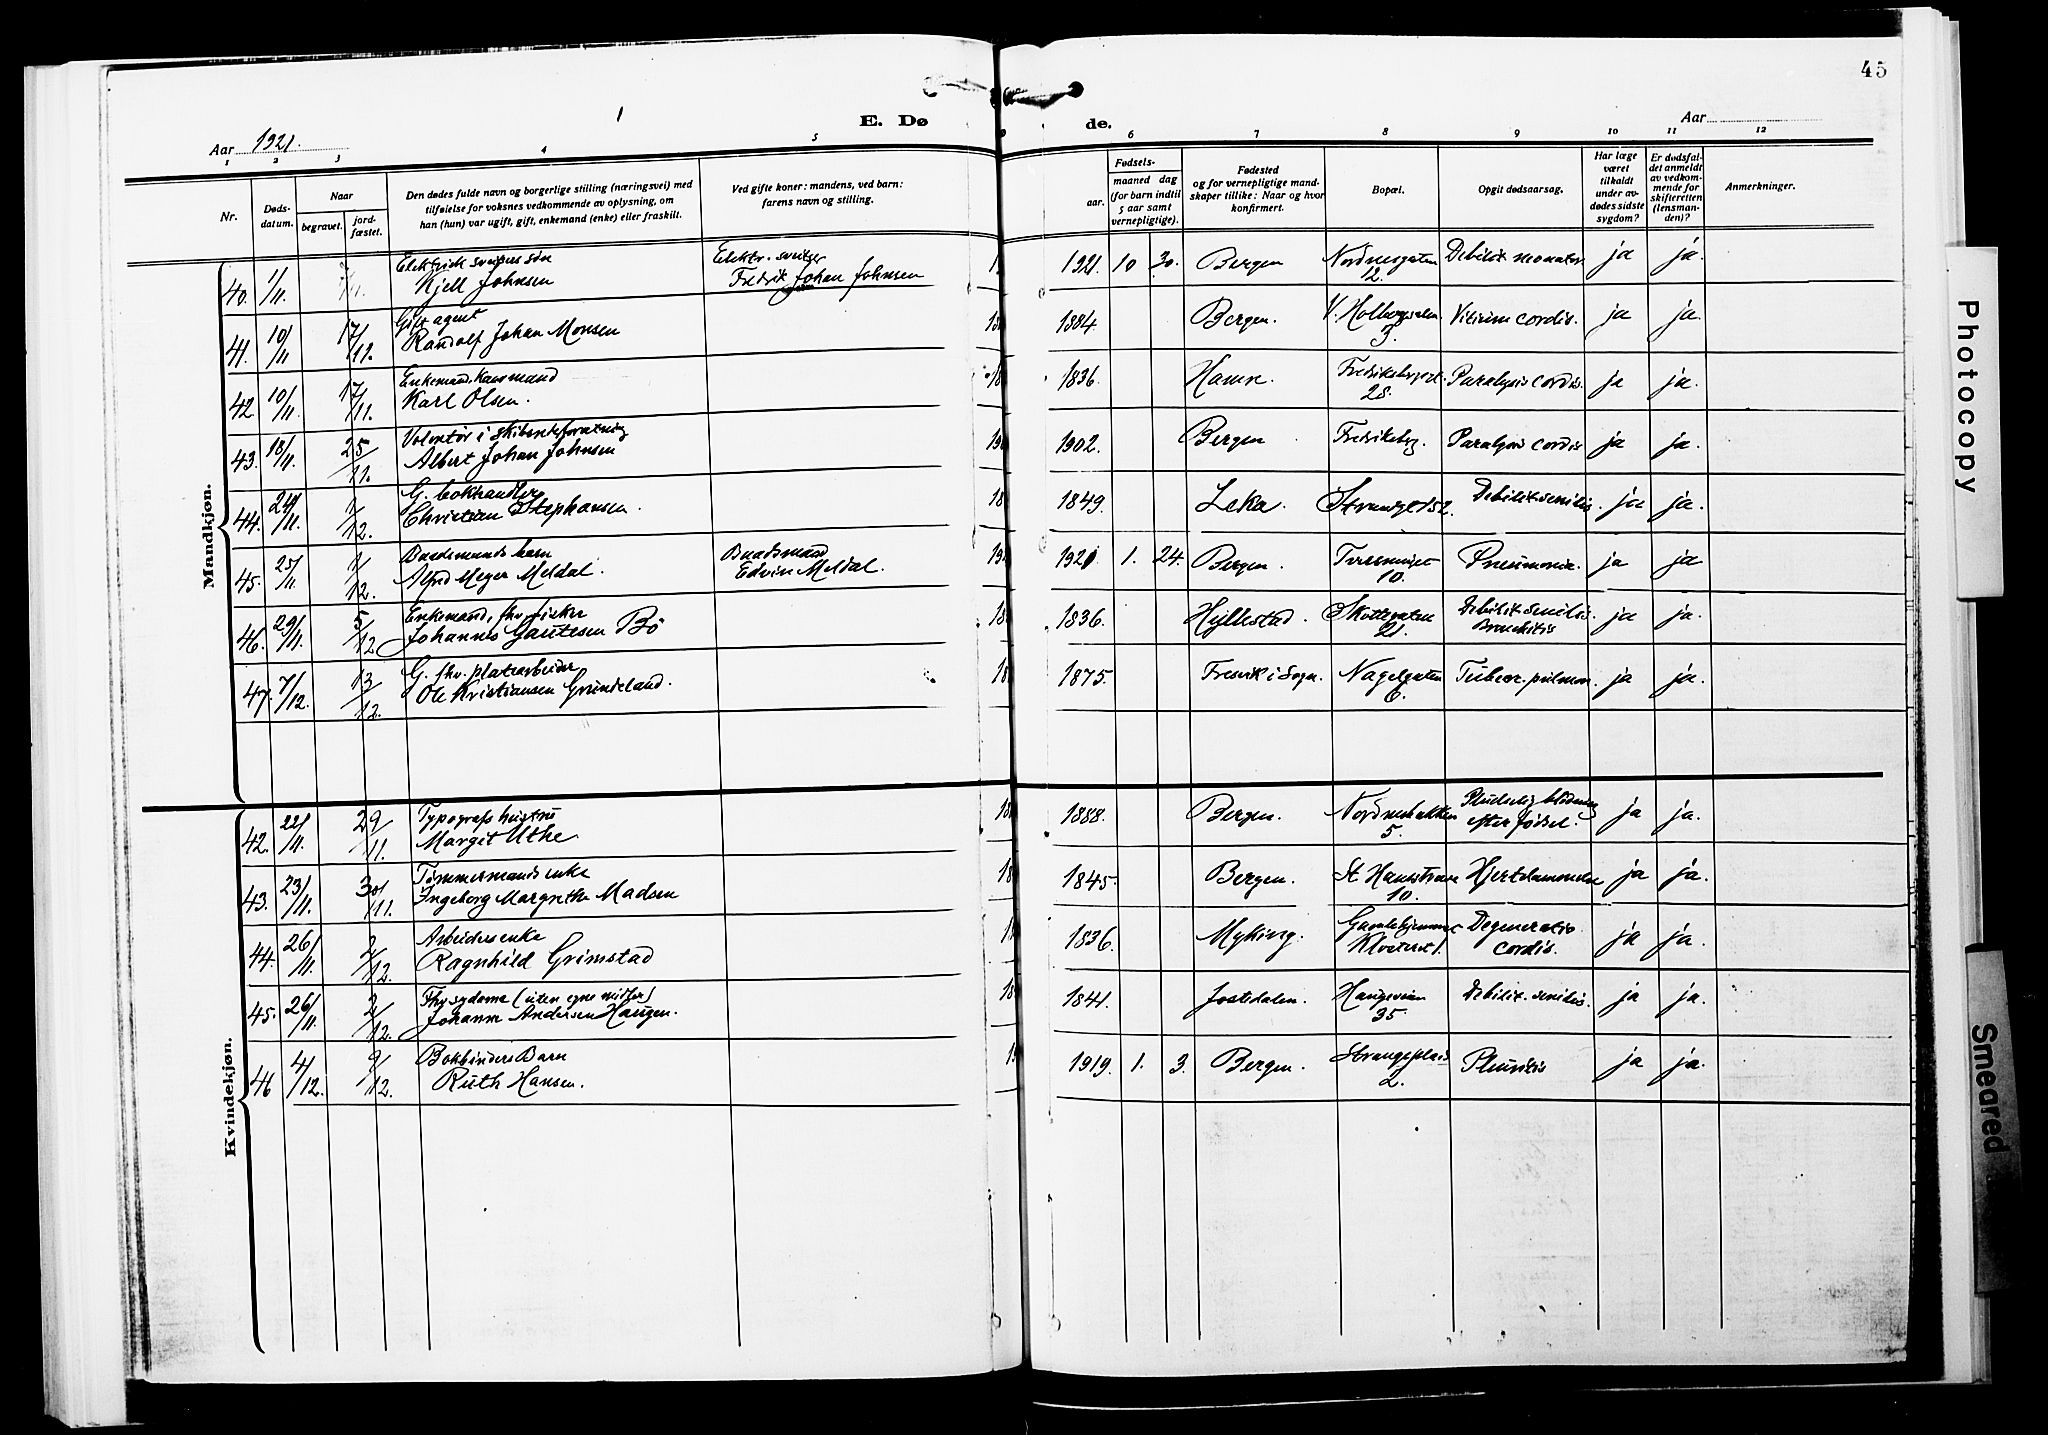 45
E. Døde.
Aar 1921.
Aar
1 2 3 4 5 6 7 8 9 10 11 12
Nr.
Døds-
datum.
Naar
begravet.
jord-
fæstet.
Den dødes fulde navn og borgerlige stilling (næringsvei) med
tilføielse for voksnes vedkommende av oplysning, om
han (hun) var ugift, gift, enkemand (enke) eller fraskilt.
Ved gifte koner: mandens, ved barn:
farens navn og stilling.
Fødsels-
aar.
maaned dag
(for barn indtil
5 aar samt
vernepligtige).
Fødested
og for vernepligtige mand-
skaper tillike: Naar og hvor
konfirmert.
Bopæl.
Opgit dødsaarsag.
Har læge
været
tilkaldt
under av-
dødes sidste
sygdom?
Er dødsfal-
det anmeldt
av vedkom-
mende for
skifteretten
(lensman-
den)?
Anmerkninger.
Mandkjøn.
40. 1/11. 7/11. Elektrisk sveisers søn
Kjell Johnsen
Elektr. sveiser
Fredrik Johan Johnsen
1921. 10 30. Bergen Nordnesgaten 12. Debilit. neonator. ja ja.
41. 10/11 17/11. Gift agent
Randolf Johan Monsen
1884 Bergen. V. Holbergsalm. 3. Vitium cordis. ja ja.
42 10/11. 17/11. Enkemand,
Karl Olsen.
1836. Hamre. 28. Paralysis cordis. ja ja.
43. 18/11. 25/11. Volontør i skibsbefragtning
Albert Johan Johnsen
1902. Bergen Fredriksbg. Paralysis cordis ja ja.
44. 24/11. 1/12. G. bokhandler
Christian Stephansen.
1849. Leka. Strandgt 52. Debilit. senilis. ja ja.
45. 25/11 1/12. Baadsmands barn
Alfred Meyer Meldal.
Baadsmand
Edvin Meldal.
1921 1. 24. Bergen. 10. Pneumonia. ja ja
46. 29/11. 5/12 Enkemand, fhv. fisker
Johannes Gautesen Bö
1836. Hyllestad. Skottegaten 21. Debilit. senilis.
Bronchitis ja ja.
47. 7/12. 13/12. G. fhv. platearbeider
Ole Kristiansen Grindeland.
1875. i Sogn. Nagelgaten 6. Tuberc. pulmon. ja ja.
Kvindekjøn.
42. 22/11. 29/11. Typografs hustru
Margit Uthe
1888. Bergen. Nordnesbakken 5. Pludselig blödning
efter födsel. ja ja.
43. 23/11. 30/11. Tömmermands enke
Ingeborg Margrethe Madsen
1845. Bergen. St. Hansstræde 10. Hjertelammelse ja ja.
44. 26/11. 2/12. Arbeiders enke
Ragnhild Grimstad
1836. Myking. Gamlehjemmet
Klosteret 1. Degeneratio
cordis. ja ja.
45. 26/11. 2/12. Fhv. sydame (uten egne midler)
Johanne Andersen Haugen.
1841. Jostedalen. Haugeveien 35. Debilit. senilis. ja ja.
46 4/12. 9/12. Bokbinders Barn
Ruth Hansen.
1919. 1. 3. Bergen. Strangeplads 2. Pleuritis ja ja.
Photocopy
Smeared